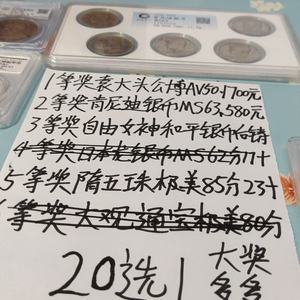 1等奖袁大头公博AV50 1700元
2等奖肯尼迪银币MS63,580元
3等奖自由女神和平银币
4等奖日本老银币MS62分11十
5等奖隋五珠极美85分23十
等奖大观通宝极美80分
20选1
大奖
多多